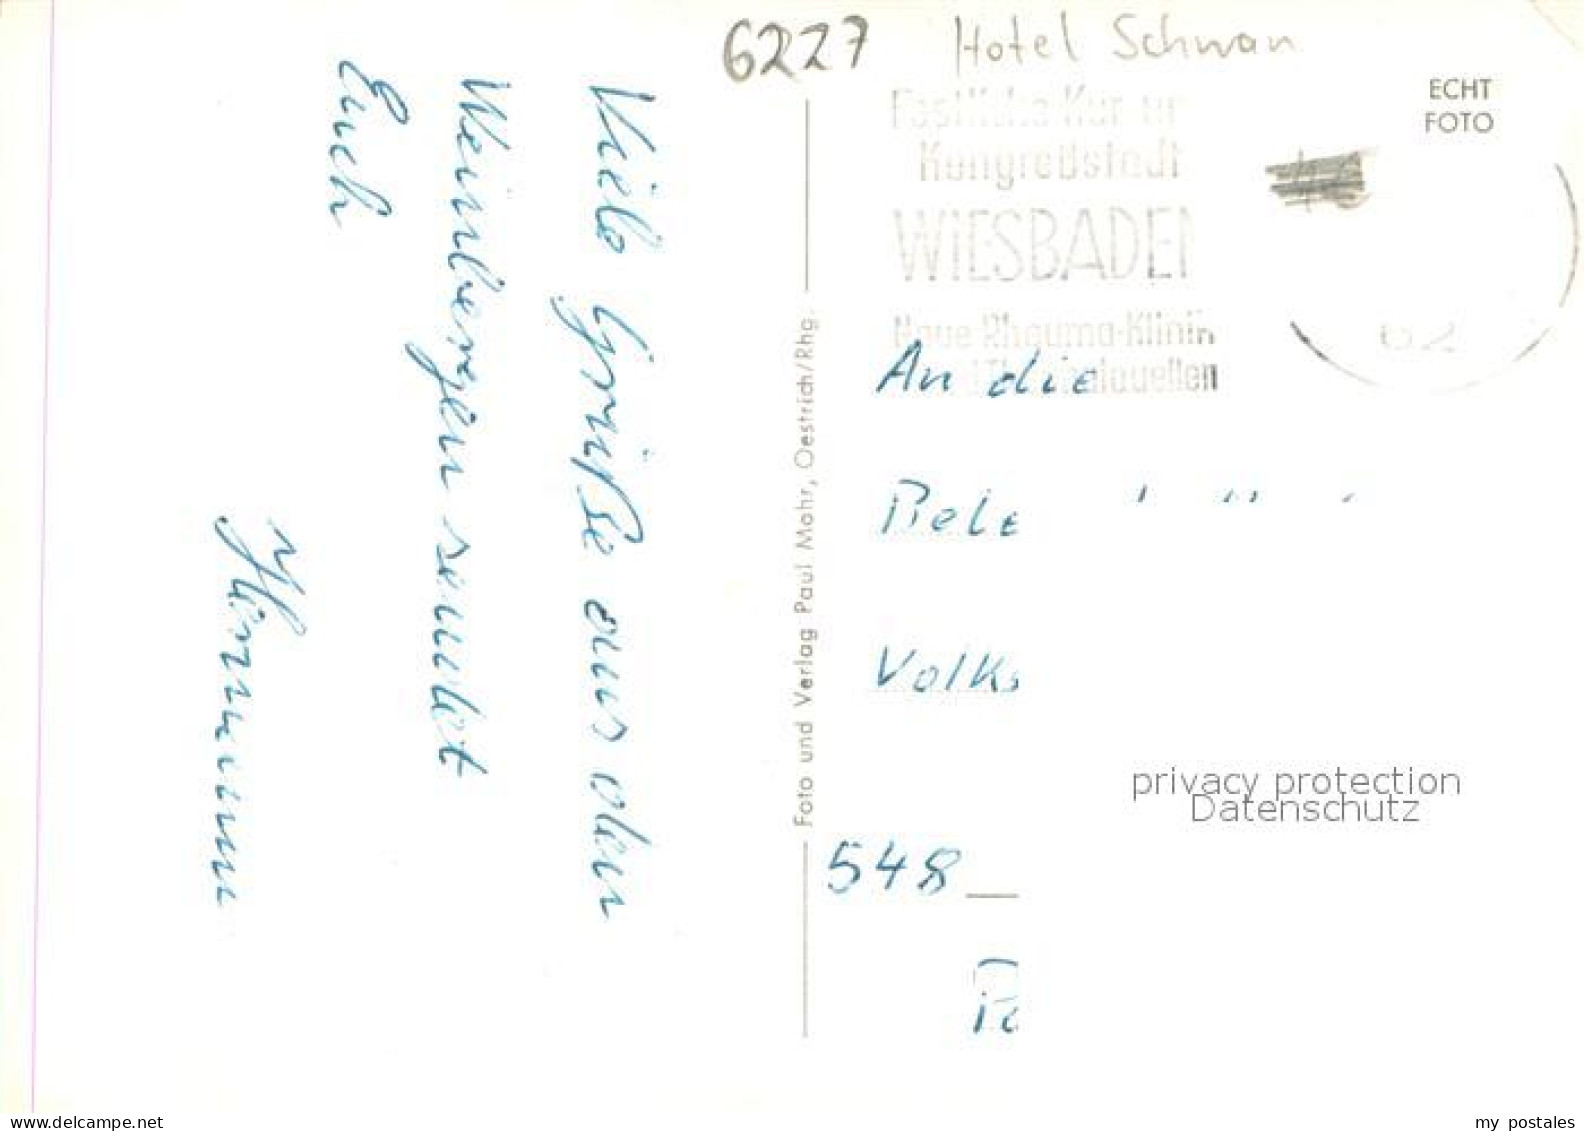 6227
Hotel Schwan
ECHT
FOTO
Festliche Kur un
Kongreßstadt
WIESBADEN
Neue Rheuma-Klinik
Thermalquellen
62
Viele Grüße aus den
Weinbergen sendet
Euch
Hermann
Foto und Verlag Paul Mohr, Oestrich/Rhg.
An die
Bele
Volks
548
privacy protection
Datenschutz
www.delcampe.net
my_postales